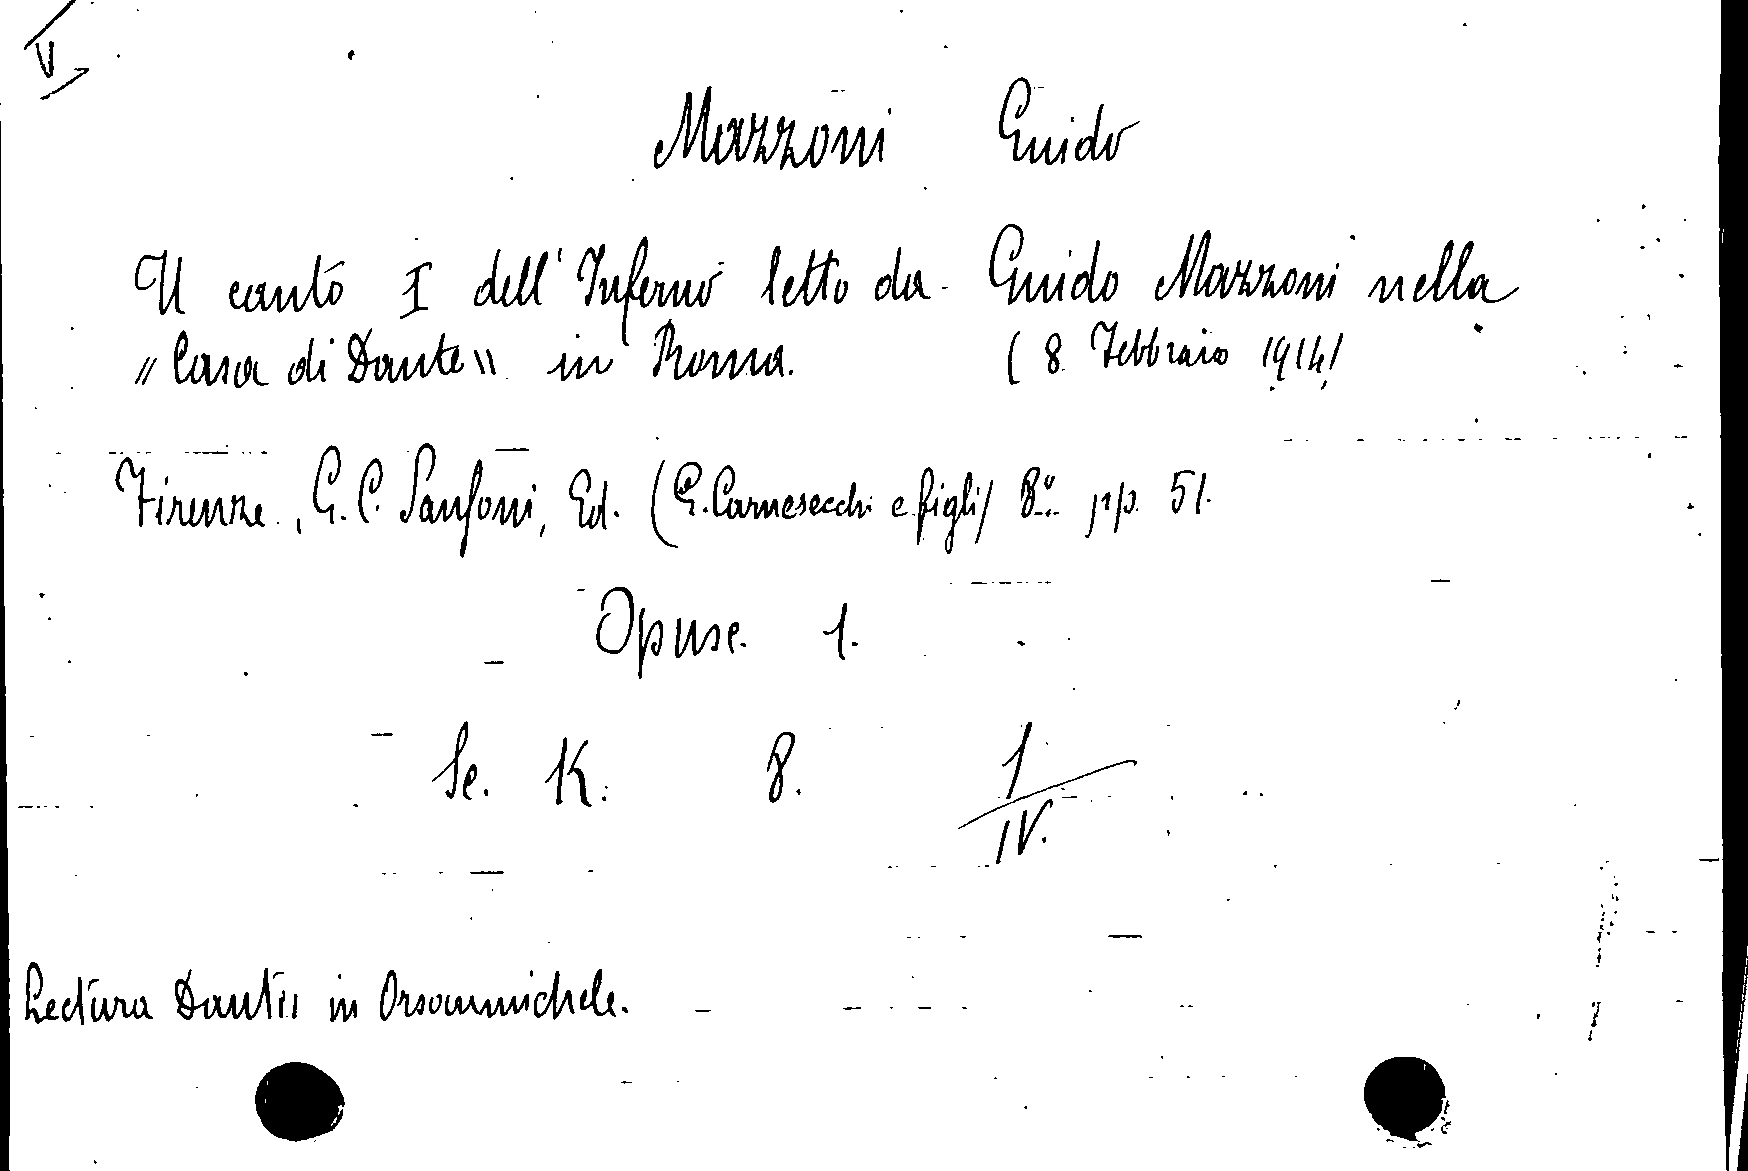 V
Mazzoni Guido
Il canto I dell'Inferno letto da Guido Mazzoni nella
"Casa di Dante" in Roma. (8 Febbraio 1914)
Firenze, G. C. Sansoni, Ed. (G. Carnesecchi e figli) 8º pp. 51.
Opusc. 1.
Sc. K. 8. 1/IV.
Lectura Dantis in Orsanmichele.